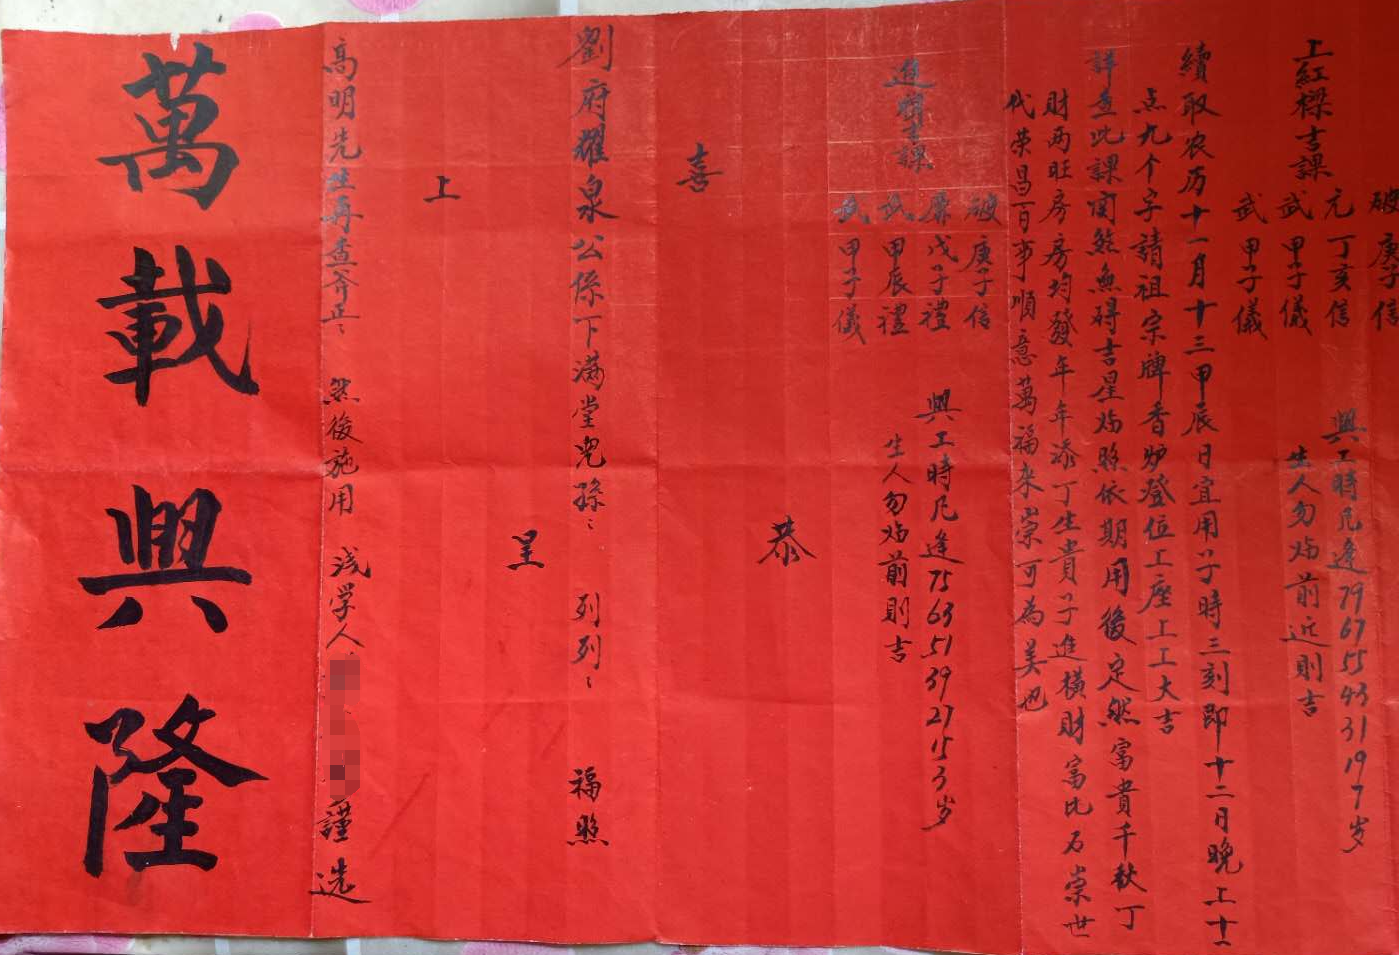 上紅樑吉課
破庚子信
元丁亥信
武甲子儀
武甲子儀
興工時凡逢79 67 55 43 31 19 7岁
生人勿临前近則吉
續取农历十一月十三甲辰日宜用子時三刻即十二日晚上十一
点九个字請祖宗牌香炉登位工座工工大吉
詳查此課関煞無碍吉星临照依期用後定然富貴千秋丁
財两旺房房均發年年添丁生貴子進橫財富比石崇世
代荣昌百事順意萬福来崇可為美也
進火吉課
破庚子信
廉戊子禮
武甲辰禮
武甲子儀
興工時凡逢75 63 51 39 27 15 3岁
生人勿临前則吉
恭
喜
劉府耀泉公係下满堂兒孫〻列列〻福照
呈
上
高明先生再查斧正〻然後施用 浅学人
謹选
萬載興隆